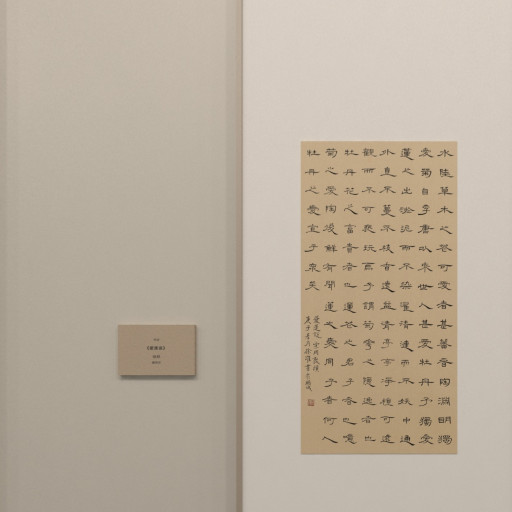 水陸草木之花可愛者甚蕃晉陶淵明獨
愛菊自李唐以來世人甚愛牡丹予獨愛
蓮之出淤泥而不染濯清漣而不妖中通
外直不蔓不枝香遠益清亭亭淨植可遠
觀而不可褻玩焉予謂菊花之隱逸者也
牡丹花之富貴者也蓮花之君子者也噫
菊之愛陶後鮮有聞蓮之愛同予者何人
牡丹之愛宜乎衆矣
愛蓮說